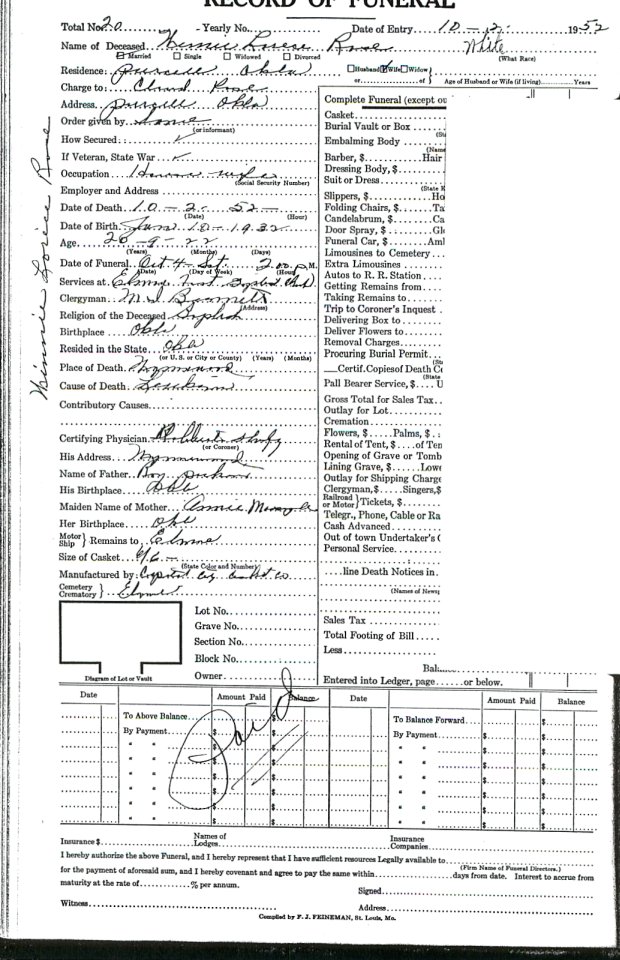 RECORD OF FUNERAL
Total No. 20 Yearly No. Date of Entry 10-12- 1952
Name of Deceased Rose White
(What Race)
Married Single Widowed Divorced
Residence: Purcell Okla Husband Wife Widow
or of Age of Husband or Wife (if living) Years
Charge to: Rose
Address. Purcell Okla
Order given by Same
(or informant)
How Secured:
If Veteran, State War
Occupation House wife
(Social Security Number)
Employer and Address
Date of Death. 10-2-52-
(Date) (Hour)
Date of Birth. Jan 10-1932
Age. 20-9-22
(Years) (Months) (Days)
Date of Funeral. Oct 4-Sat. 2:00 P.M.
(Date) (Day of Week) (Hour)
Services at. Elmore First Baptist
Clergyman.
(Address)
Religion of the Deceased Baptist
Birthplace Okla
Resided in the State. Okla
(or U. S. or City or County) (Years) (Months)
Place of Death. Wynnewood
Cause of Death.
Contributory Causes.
Certifying Physician.
(or Coroner)
His Address Wynnewood
Name of Father. Roy
His Birthplace Okla
Maiden Name of Mother. Annie
Her Birthplace. Okla
Motor Ship Remains to Elmore
Size of Casket. 6/6-
(State Color and Number)
Manufactured by: Casket Co
Cemetery Crematory Elmore
Diagram of Lot or Vault
Lot No.
Grave No.
Section No.
Block No.
Owner
Minnie Rose
Complete Funeral (except ou
Casket
Burial Vault or Box
Embalming Body
(Name
Barber, $ Hair
Dressing Body, $
Suit or Dress
(State
Slippers, $ Ho
Folding Chairs, $ Ta
Candelabrum, $ Ca
Door Spray, $ Gl
Funeral Car, $ Aml
Limousines to Cemetery
Extra Limousines
Autos to R. R. Station
Getting Remains from
Taking Remains to
Trip to Coroner's Inquest
Delivering Box to
Deliver Flowers to
Removal Charges
Procuring Burial Permit
Certif. Copies of Death Ce
(State
Pall Bearer Service, $ U
Gross Total for Sales Tax
Outlay for Lot
Cremation
Flowers, $ Palms, $
Rental of Tent, $ of Ten
Opening of Grave or Tomb
Lining Grave, $ Lowe
Outlay for Shipping Charge
Clergyman, $ Singers, $
Railroad or Motor Tickets, $
Telegr., Phone, Cable or Ra
Cash Advanced
Out of town Undertaker's
Personal Service
line Death Notices in
(Names of Newsp
Sales Tax
Total Footing of Bill
Less
Bala
Entered into Ledger, page or below.
Date Amount Paid Balance Date Amount Paid Balance
To Above Balance $ To Balance Forward $
By Payment $ By Payment $
Paid
Insurance $ Names of Lodges Insurance Companies
I hereby authorize the above Funeral, and I hereby represent that I have sufficient resources Legally available to
(Firm Name of Funeral Directors.)
for the payment of aforesaid sum, and I hereby covenant and agree to pay the same within days from date. Interest to accrue from
maturity at the rate of % per annum.
Signed
Witness Address
Compiled by F. J. FEINEMAN, St. Louis, Mo.